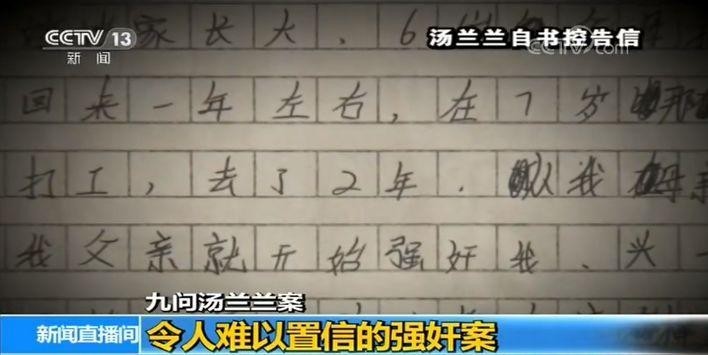 CCTV 13
新闻
汤兰兰自书控告信
CCTV.com
家长大、6岁
回来一年左右,在7岁那
打工,去了2年.以我母亲
我父亲就开始强奸我、兴一
九问汤兰兰案
新闻直播间
令人难以置信的强奸案